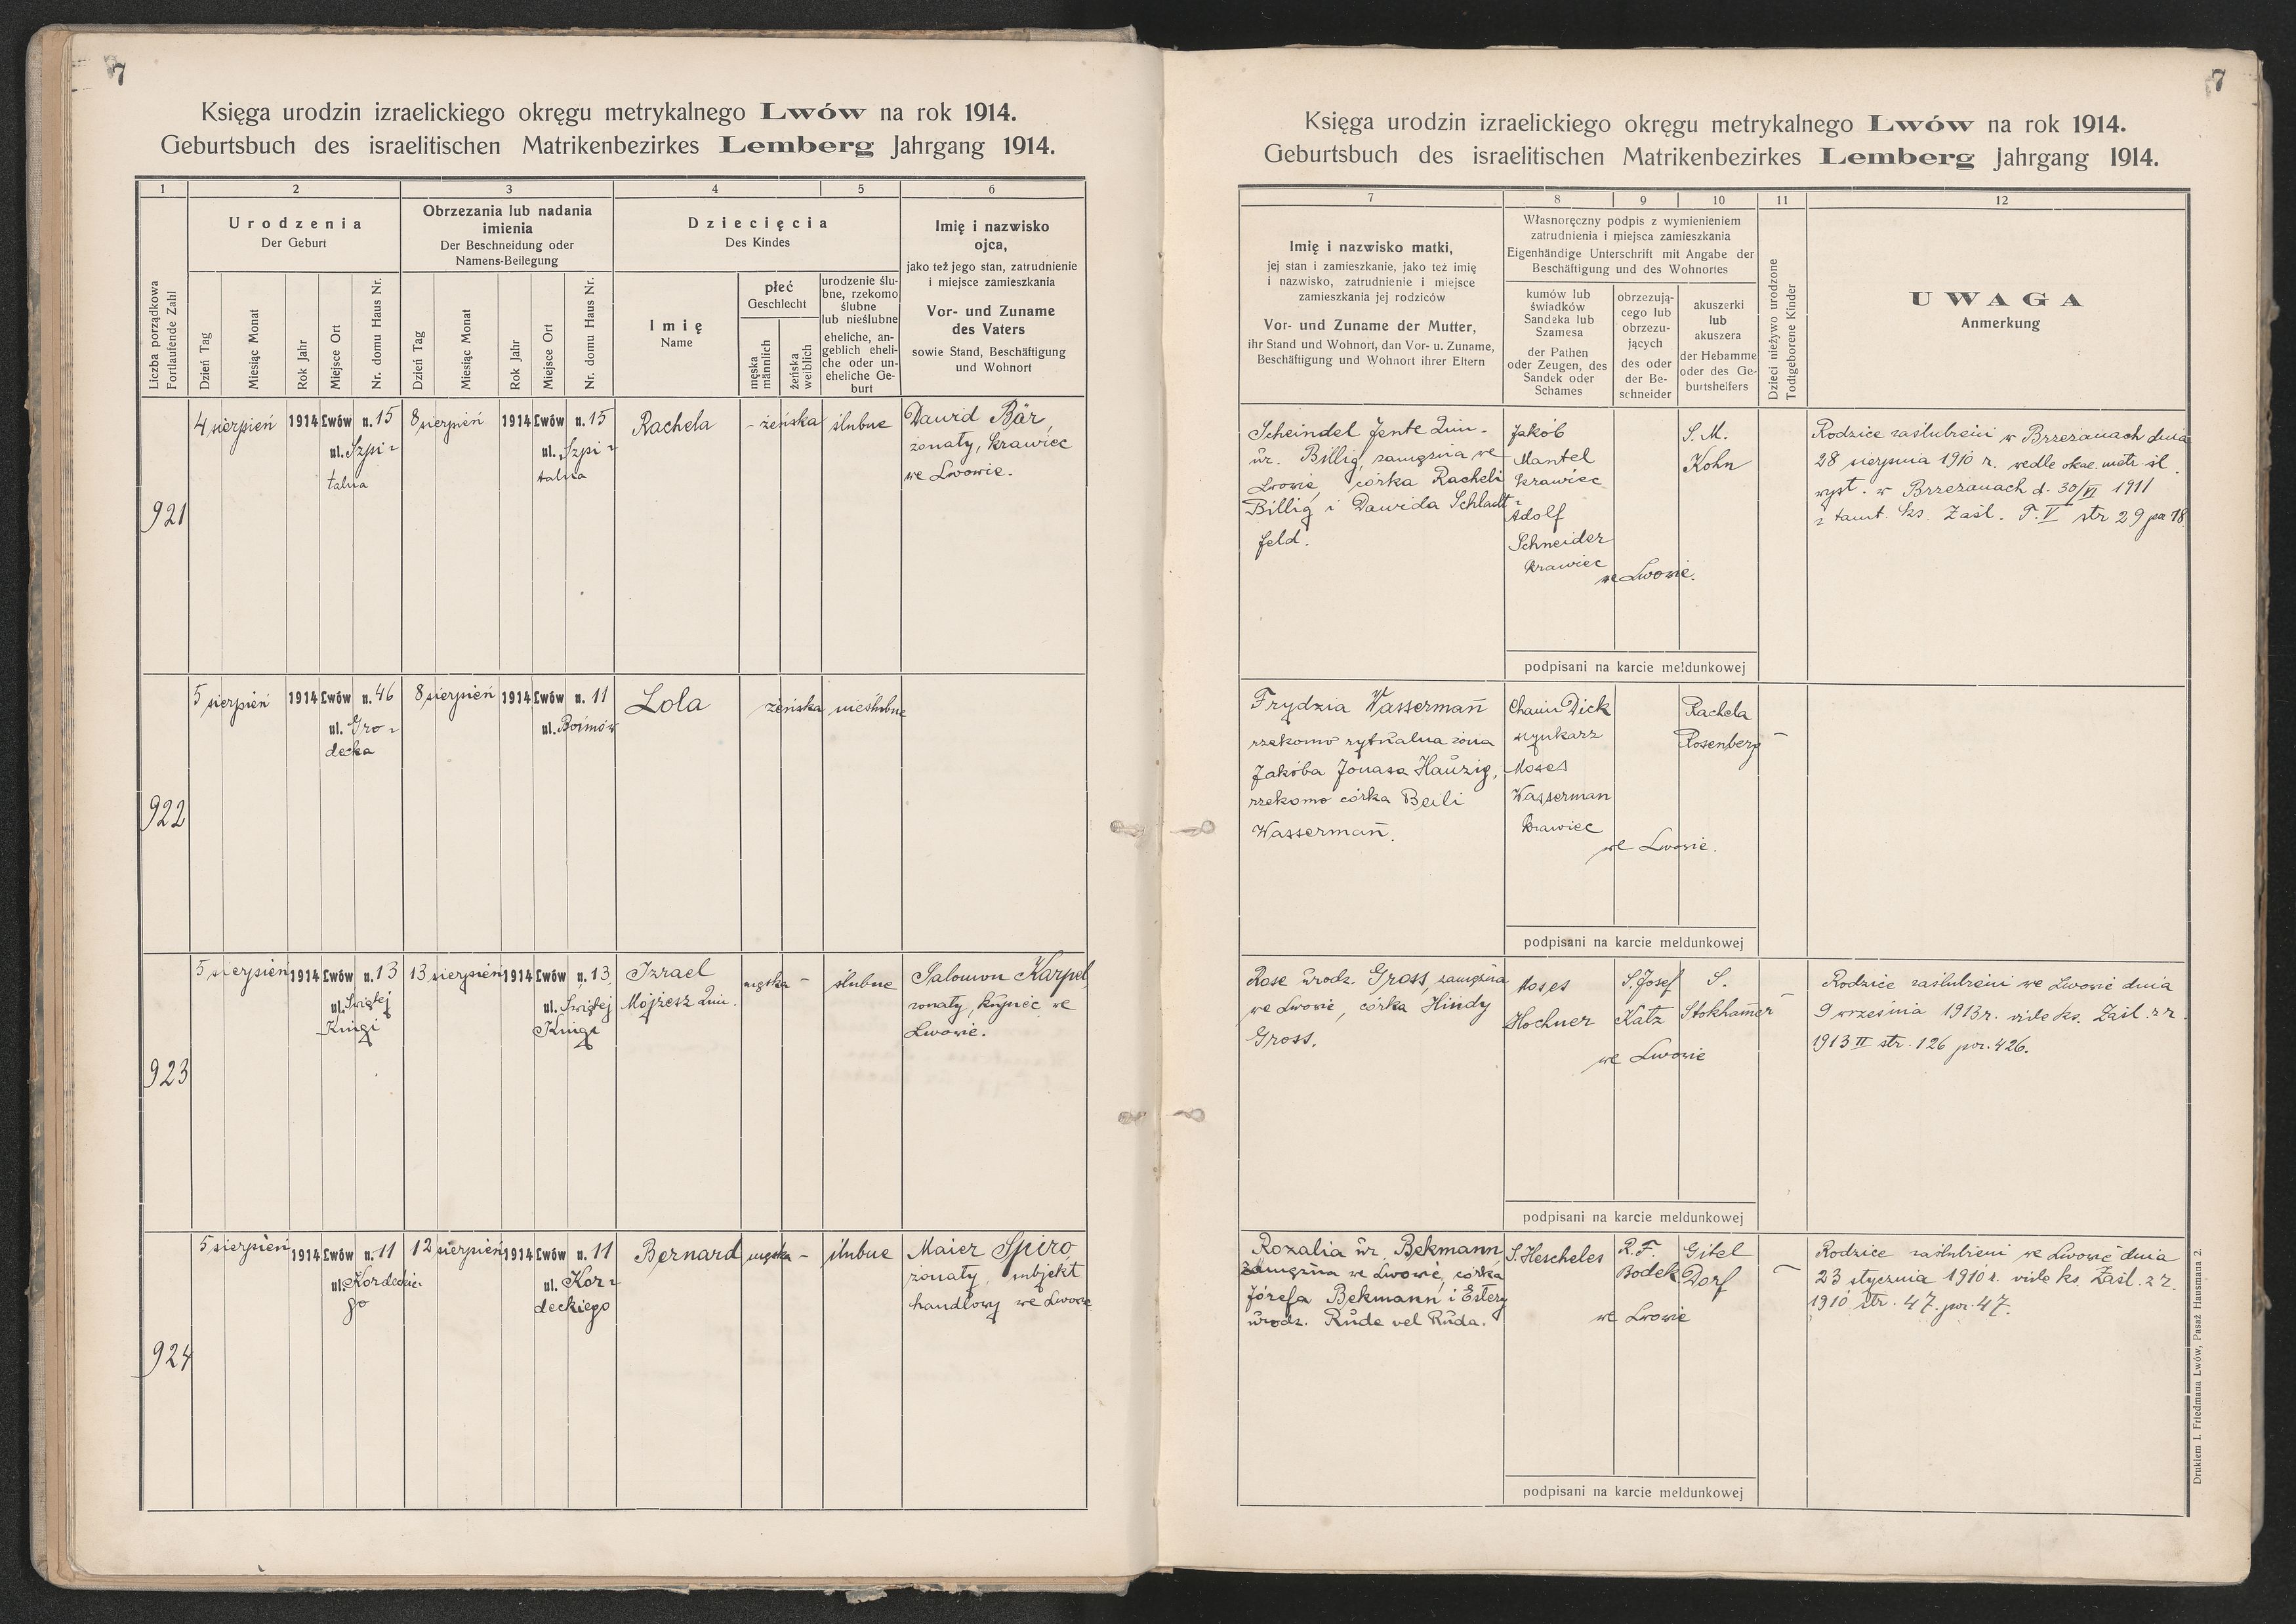 7
Księga urodzin izraelickiego okręgu metrykalnego Lwów na rok 1914.
Geburtsbuch des israelitischen Matrikenbezirkes Lemberg Jahrgang 1914.
1 2 3 4 5 6
Liczba porządkowa
Fortlaufende Zahl
Urodzenia
Der Geburt
Dzień Tag
Miesiąc Monat
Rok Jahr
Miejsce Ort
Nr. domu Haus Nr.
Obrzezania lub nadania
imienia
Der Beschneidung oder
Namens-Beilegung
Dzień Tag
Miesiąc Monat
Rok Jahr
Miejsce Ort
Nr. domu Haus Nr.
Dziecięcia
Des Kindes
Imię
Name
płeć
Geschlecht
męska
männlich
żeńska
weiblich
urodzenie ślu-
bne, rzekomo
ślubne
lub nieślubne
eheliche, an-
geblich eheli-
che oder un-
eheliche Ge-
burt
Imię i nazwisko
ojca,
jako też jego stan, zatrudnienie
i miejsce zamieszkania
Vor- und Zuname
des Vaters
sowie Stand, Beschäftigung
und Wohnort
921
4 sierpień 1914 Lwów n. 15
ul. Szpi-
talna
8 sierpień 1914 Lwów n. 15
ul. Szpi-
talna
Rachela
- żeńska
ślubne
Dawid Bär,
żonaty, krawiec
we Lwowie.
922
5 sierpień 1914 Lwów n. 46
ul. Gro-
decka
8 sierpień 1914 Lwów n. 11
ul. Boimów
Lola
żeńska
nieślubne
923
5 sierpień 1914 Lwów n. 13
ul. Świętej
Kingi
13 sierpień 1914 Lwów n. 13
ul. Świętej
Kingi
Izrael
Mojżesz 2im.
męska -
ślubne
Salomon Karpel,
żonaty, kupiec we
Lwowie.
924
5 sierpień 1914 Lwów n. 11
ul. Kordeckie-
go
12 sierpień 1914 Lwów n. 11
ul. Kor-
deckiego
Bernard
męska -
ślubne
Maier Spiro,
żonaty, subjekt
handlowy we Lwowie
7
Księga urodzin izraelickiego okręgu metrykalnego Lwów na rok 1914.
Geburtsbuch des israelitischen Matrikenbezirkes Lemberg Jahrgang 1914.
7 8 9 10 11 12
Imię i nazwisko matki,
jej stan i zamieszkanie, jako też imię
i nazwisko, zatrudnienie i miejsce
zamieszkania jej rodziców
Vor- und Zuname der Mutter,
ihr Stand und Wohnort, dan Vor- u. Zuname,
Beschäftigung und Wohnort ihrer Eltern
Własnoręczny podpis z wymienieniem
zatrudnienia i miejsca zamieszkania
Eigenhändige Unterschrift mit Angabe der
Beschäftigung und des Wohnortes
kumów lub
świadków
Sandeka lub
Szamesa
der Pathen
oder Zeugen, des
Sandek oder
Schames
obrzezują-
cego lub
obrzezu-
jących
des oder
der Be-
schneider
akuszerki
lub
akuszera
der Hebamme
oder des Ge-
burtshelfers
Dzieci nieżywo urodzone
Todtgeborene Kinder
UWAGA
Anmerkung
Scheindel Jente 2im.
ur. Billig, zamężna we
Lwowie, córka Racheli
Billig i Dawida Schlacht-
feld.
Jakób
Mantel
krawiec
Adolf
Schneider
krawiec
we Lwowie.
S. M.
Kohn
Rodzice zaślubieni w Brzeżanach dnia
28 sierpnia 1910 r. wedle okaz. metr. śl.
wyst. w Brzeżanach d. 30/VI 1911
z tamt. ks. Zaśl. T. V str 29 poz 18
podpisani na karcie meldunkowej
Frydzia Wassermann
rzekomo rytualna żona
Jakóba Jonasa Hauzig,
rzekomo córka Beili
Wassermann.
Chaim Dick
szynkarz
Moses
Wasserman
krawiec
we Lwowie.
Rachela
Rosenberg
podpisani na karcie meldunkowej
Rose urodz. Gross, zamężna
we Lwowie, córka Hindy
Gross.
Moses
Hochner
S. Josef
Katz
S.
Stokhammer
we Lwowie
Rodzice zaślubieni we Lwowie dnia
9 września 1913 r. vide ks. Zaśl. z r.
1913 II str. 126 poz. 426.
podpisani na karcie meldunkowej
Rozalia ur. Bekmann,
zamężna we Lwowie, córka
Józefa Bekmann i Estery
urodz. Rude vel Ruda.
S. Hescheles
R. F.
Bodek
Gitel
Dorf
we Lwowie
Rodzice zaślubieni we Lwowie dnia
23 stycznia 1910 r. vide ks. Zaśl. z r.
1910 str. 47. poz. 47.
podpisani na karcie meldunkowej
Drukiem I. Friedmana Lwów, Pasaż Hausmana 2.